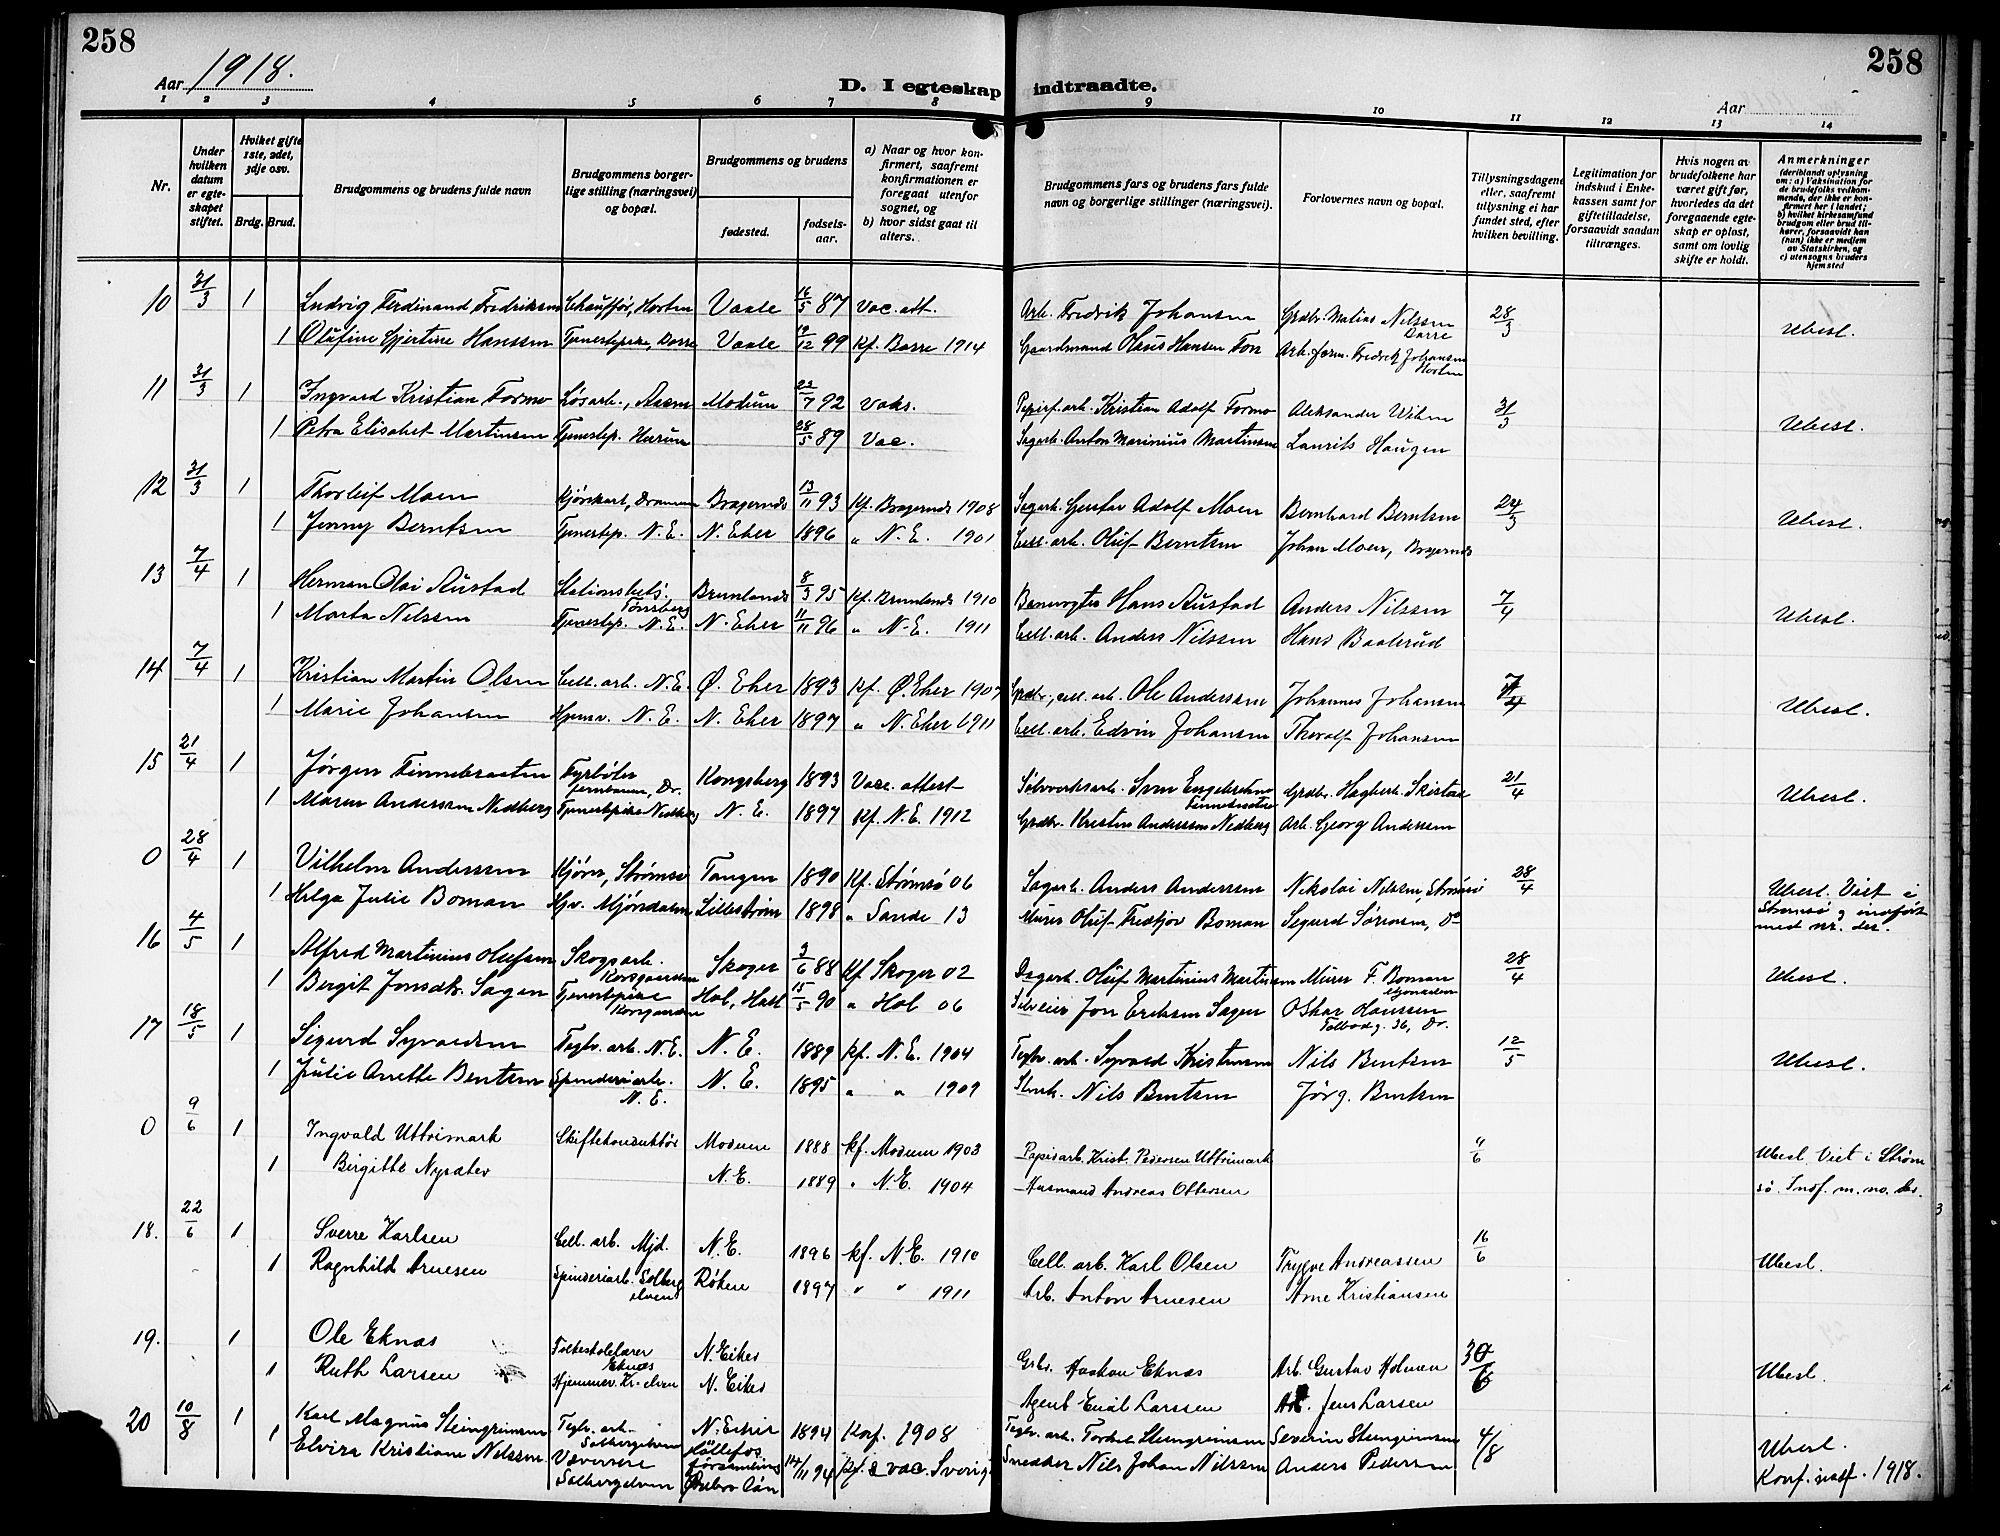 258
258
Aar 1918.
D. I egteskap indtraadte.
Aar
1 2 3 4 5 6 7 8 9 10 11 12 13 14
Nr.
Under hvilken datum er egteskapet stiftet.
Hvilket gifte 1ste, 2det, 3dje osv.
Brdg. Brud.
Brudgommens og brudens fulde navn
Brudgommens borgerlige stilling (næringsvei) og bopæl.
Brudgommens og brudens
fødested. fødselsaar.
a) Naar og hvor konfirmert, saafremt konfirmationen er foregaat utenfor sognet, og
b) hvor sidst gaat til alters.
Brudgommens fars og brudens fars fulde navn og borgerlige stillinger (næringsvei).
Forlovernes navn og bopæl.
Tillysningsdagene eller, saafremt tillysning ei har fundet sted, efter hvilken bevilling.
Legitimation for indskud i Enkekassen samt for giftetilladelse, forsaavidt saadan tiltrænges.
Hvis nogen av brudefolkene har været gift før, hvorledes da det foregaaende egteskap er opløst, samt om lovlig skifte er holdt.
Anmerkninger (deriblandt oplysning om: a) Vaksination for de brudefolks vedkommende, der ikke er konfirmert her i landet; b) hvilket kirkesamfund brudgom eller brud tilhører, forsaavidt han (hun) ikke er medlem av Statskirken, og c) utensogns bruders hjemsted
10 31/3 1 Ludvig Ferdinand Fredriksen Chauffør, Horten Vaale 16/5 87 Vac. att. Arb. Fredrik Johansen Grdbr. Matias Nilssen Borre 28/3 Ubesl.
1 Olufine Gjertine Hanssen Tjenestepike, Borre Vaale 19/12 99 Kf. Borre 1914 Gaardmand Olaus Hansen Fon Arb. form. Fredrik Johansen Horten
11 31/3 1 Ingvard Kristian Formo Løsarb., Aasen Modum 22/7 92 Vaks. Papirf. arb. Kristian Adolf Formo Aleksander Wilm 31/3 Ubesl.
1 Petra Elisabet Martinsen Tjenestep. Hærum 28/5 89 Vac. Sagarb. Anton Marinius Martinsen Laurits Haugen
12 31/3 1 Thorleif Moen Kjørekarl, Drammen Bragernes 13/11 93 Kf. Bragernes 1908 Sagarb. Gustav Adolf Moen Bernhard Berntsen 24/3 Ubesl.
1 Jenny Berntsen Tjenestep. N. E. N. Eker 1896 " N. E. 1901 Cell. arb. Oluf Berntsen Johan Moen, Bragernes
13 7/4 1 Herman Olai Austad Stationsbetj. Tønsberg Brunlanes 8/3 95 Kf. Brunlanes 1910 Banevogter Hans Austad Anders Nilssen 7/4 Ubesl.
1 Marta Nilssen Tjenestep. N. E. N. Eker 11/11 96 " N. E. 1911 Cell. arb. Anders Nilssen Hans Baalerud
14 7/4 1 Kristian Martin Olsen Cell. arb. N. E. Ø. Eker 1893 Kf. Ø. Eker 1907 Grdbr., cell. arb. Ole Anderssen Johannes Johansen 7/4 Ubesl.
1 Marie Johansen Hjemv. N. E. N. Eker 1897 " N. Eker 1911 Cell. arb. Edvin Johansen Thoralf Johansen
15 21/4 1 Jørgen Finnebraaten Fyrbøter jernbanen, Dr. Kongsberg 1893 Vacc. attest Sølvverksarb. Sven Engebretsen Finnebraaten Grdbr. Hagbart Skistad 21/4 Ubesl.
1 Maren Anderssen Nedberg Tjenestepike Nedberg N. E. 1897 Kf. N. E. 1912 Grdbr. Kristen Anderssen Nedberg Arb. Georg Anderssen
0 28/4 1 Vilhelm Anderssen Kjører, Strømsø Tangen 1890 Kf. Strømsø 06 Sagarb. Anders Anderssen Nikolai Nilssen, Strømsø 28/4 Ubesl. Viet i Strømsø og indført med nr. der.
1 Helga Julie Boman Hjv. Mjøndalen Lillestrøm 1898 " Sande 13 Murer Oluf Fredtjov Boman Sigurd Sørensen, Do
16 4/5 1 Alfred Martinius Olufsen Skogsarb. Korsgaarden Skoger 3/6 88 Kf. Skoger 02 Dagarb. Oluf Martinius Martinsen Murer F. Boman Mjøndalen 28/4 Ubesl.
1 Bergit Jonsdtr. Sagen Tjenestepike Korsgaarden Hol, Hall. 15/5 90 " Hol 06 Selveier Jon Eriksen Sagen Oskar Hanssen Tolbodg. 36, Dr.
17 18/5 1 Sigurd Syvertsen Teglv. arb. N. E. N. E. 1889 Kf. N. E. 1904 Teglv. arb. Syvert Kristensen Nils Bentsen 12/5 Ubesl.
1 Julie Anette Bentsen Spinderiarb. N. E. N. E. 1895 " " 1909 Nils Bentsen Jørg. Bentsen
0 9/6 1 Ingvald Uttrimark Skiftekonduktør Modum 1888 kf. Modum 1903 Papirarb. Krist. Pedersen Uttrimark 9/6 Ubesl. Viet i Strøm
1 Birgitte Nysæter N. E. 1889 " N. E. 1904 Husmand Andreas Ottersen sø. Indf. m. no. der.
18. 22/6 1 Sverre Karlsen Cell. arb. Mjd. N. E. 1896 kf. N. E. 1910 Cell. arb. Karl Olsen Trygve Andreassen 16/6 Ubesl.
1 Ragnhild Arnesen Spinderiarb. Solbergelven Røken 1897 " " 1911 Arb. Anton Arnesen Arne Kristiansen
19. 1 Ole Eknæs Folkeskolelærer Eknæs N. Eiker Grbr. Haakon Eknæs Arb. Gustav Holmen 30/6 Ubesl.
1 Ruth Larsen Hjemmev. Kr.elven N. Eiker Agent Emil Larssen Arb. Jens Larsen
20 10/8 1 Karl Magnus Steingrimsen Teglv. arb. Solbergelven N. Eiker 1894 Konf. 1908 Teglv. arb. Torkel Steingrimsen Severin Steingrimsen 4/8 Ubesl.
1 Elvira Kristiane Nilssen Væverske Solbergelven Hållefos församling Örebro län 14/11 94 kf. & vac. Sverig Smedder Nils Johan Nilssen Anders Pedersen Konf. indf. 1918.